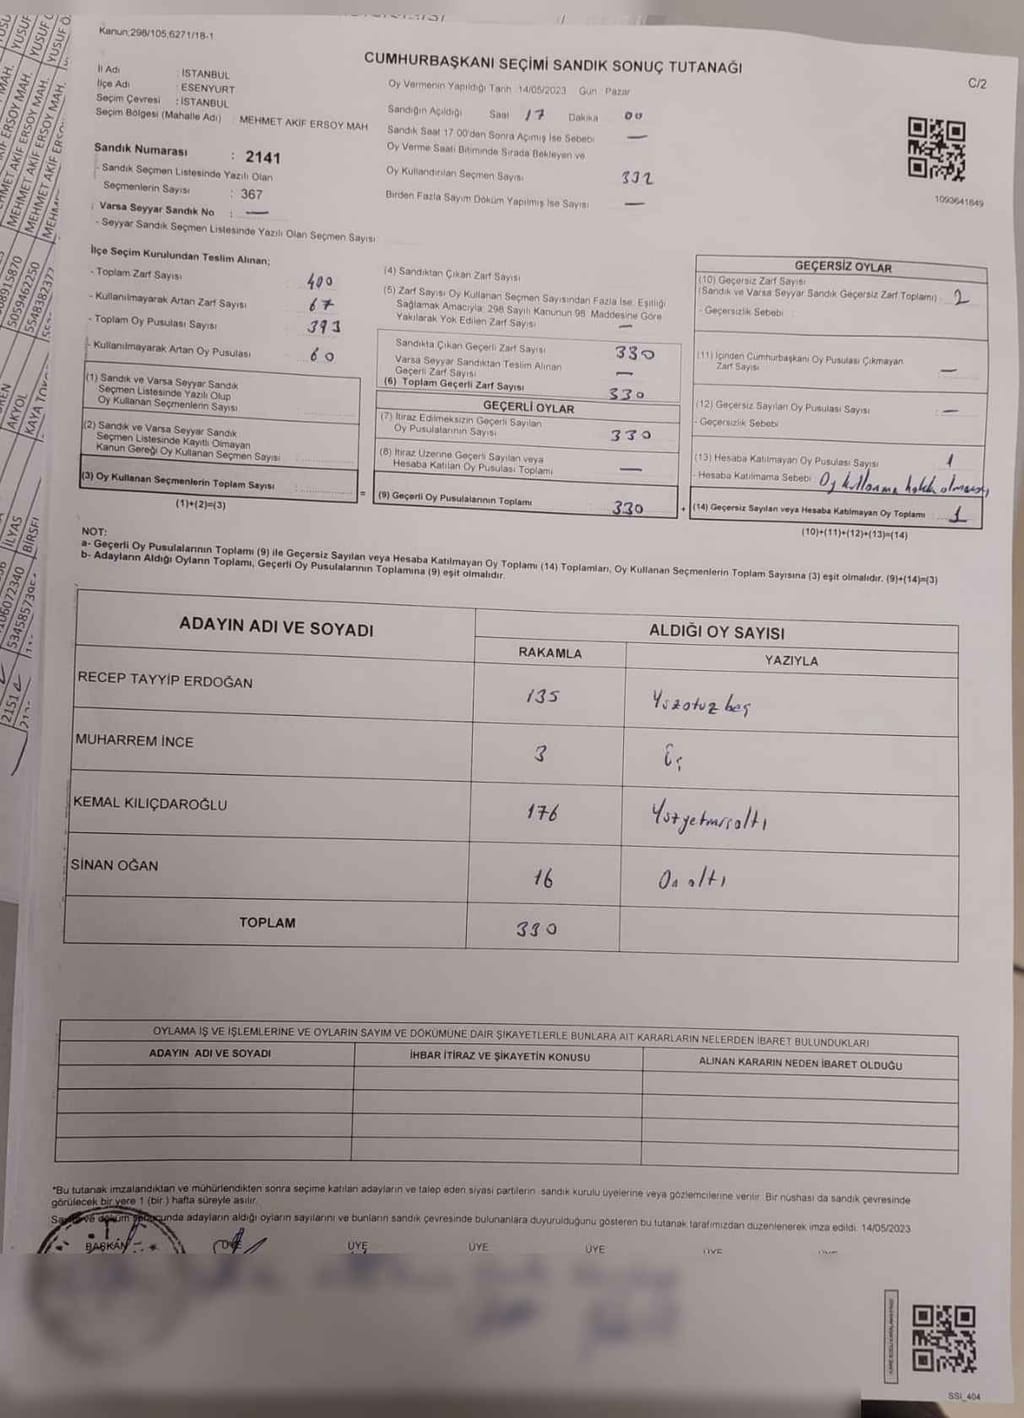 Kanun;298/105;6271/18-1
CUMHURBAŞKANI SEÇİMİ SANDIK SONUÇ TUTANAĞI
C/2
İl Adı : İSTANBUL
İlçe Adı : ESENYURT
Seçim Çevresi : İSTANBUL
Seçim Bölgesi (Mahalle Adı) : MEHMET AKİF ERSOY MAH
Sandık Numarası : 2141
- Sandık Seçmen Listesinde Yazılı Olan
Seçmenlerin Sayısı : 367
Varsa Seyyar Sandık No : —
- Seyyar Sandık Seçmen Listesinde Yazılı Olan Seçmen Sayısı
Oy Vermenin Yapıldığı Tarih 14/05/2023 Gün Pazar
Sandığın Açıldığı Saat 17 Dakika 00
Sandık Saat 17.00'den Sonra Açılmış İse Sebebi —
Oy Verme Saati Bitiminde Sırada Bekleyen ve
Oy Kullandırılan Seçmen Sayısı 332
Birden Fazla Sayım Döküm Yapılmış İse Sayısı —
1093641849
İlçe Seçim Kurulundan Teslim Alınan;
- Toplam Zarf Sayısı 400
- Kullanılmayarak Artan Zarf Sayısı 67
- Toplam Oy Pusulası Sayısı 393
- Kullanılmayarak Artan Oy Pusulası 60
(1) Sandık ve Varsa Seyyar Sandık
Seçmen Listesinde Yazılı Olup
Oy Kullanan Seçmenlerin Sayısı
(2) Sandık ve Varsa Seyyar Sandık
Seçmen Listesinde Kayıtlı Olmayan
Kanun Gereği Oy Kullanan Seçmen Sayısı
(3) Oy Kullanan Seçmenlerin Toplam Sayısı :
(1)+(2)=(3)
=
(4) Sandıktan Çıkan Zarf Sayısı
(5) Zarf Sayısı Oy Kullanan Seçmen Sayısından Fazla İse; Eşitliği
Sağlamak Amacıyla; 298 Sayılı Kanunun 98. Maddesine Göre
Yakılarak Yok Edilen Zarf Sayısı —
Sandıkta Çıkan Geçerli Zarf Sayısı 330
Varsa Seyyar Sandıktan Teslim Alınan
Geçerli Zarf Sayısı —
(6) Toplam Geçerli Zarf Sayısı 330
GEÇERLİ OYLAR
(7) İtiraz Edilmeksizin Geçerli Sayılan
Oy Pusulalarının Sayısı 330
(8) İtiraz Üzerine Geçerli Sayılan veya
Hesaba Katılan Oy Pusulası Toplamı —
(9) Geçerli Oy Pusulalarının Toplamı 330
+
GEÇERSİZ OYLAR
(10) Geçersiz Zarf Sayısı
(Sandık ve Varsa Seyyar Sandık Geçersiz Zarf Toplamı) : 2
- Geçersizlik Sebebi
(11) İçinden Cumhurbaşkanı Oy Pusulası Çıkmayan
Zarf Sayısı —
(12) Geçersiz Sayılan Oy Pusulası Sayısı : —
- Geçersizlik Sebebi
(13) Hesaba Katılmayan Oy Pusulası Sayısı 1
- Hesaba Katılmama Sebebi Oy kullanma hakkı olmaması
(14) Geçersiz Sayılan veya Hesaba Katılmayan Oy Toplamı 1
(10)+(11)+(12)+(13)=(14)
NOT:
a- Geçerli Oy Pusulalarının Toplamı (9) ile Geçersiz Sayılan veya Hesaba Katılmayan Oy Toplamı (14) Toplamları, Oy Kullanan Seçmenlerin Toplam Sayısına (3) eşit olmalıdır. (9)+(14)=(3)
b- Adayların Aldığı Oyların Toplamı, Geçerli Oy Pusulalarının Toplamına (9) eşit olmalıdır.
ADAYIN ADI VE SOYADI
ALDIĞI OY SAYISI
RAKAMLA YAZIYLA
RECEP TAYYİP ERDOĞAN 135 Yüzotuzbeş
MUHARREM İNCE 3 Üç
KEMAL KILIÇDAROĞLU 176 Yüzyetmişaltı
SİNAN OĞAN 16 On altı
TOPLAM 330
OYLAMA İŞ VE İŞLEMLERİNE VE OYLARIN SAYIM VE DÖKÜMÜNE DAİR ŞİKAYETLERLE BUNLARA AİT KARARLARIN NELERDEN İBARET BULUNDUKLARI
ADAYIN ADI VE SOYADI İHBAR İTİRAZ VE ŞİKAYETİN KONUSU ALINAN KARARIN NEDEN İBARET OLDUĞU
*Bu tutanak imzalandıktan ve mühürlendikten sonra seçime katılan adayların ve talep eden siyasi partilerin sandık kurulu üyelerine veya gözlemcilerine verilir. Bir nüshası da sandık çevresinde
görülecek bir yere 1 (bir) hafta süreyle asılır.
Sayım ve döküm sonucunda adayların aldığı oyların sayılarını ve bunların sandık çevresinde bulunanlara duyurulduğunu gösteren bu tutanak tarafımızdan düzenlenerek imza edildi. 14/05/2023
BAŞKAN ÜYE ÜYE ÜYE
SSİ_404